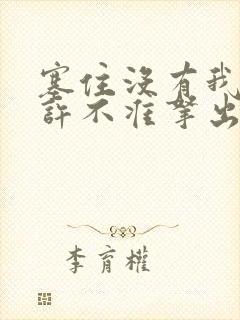 塞住没有我
许不准拿出
李育權